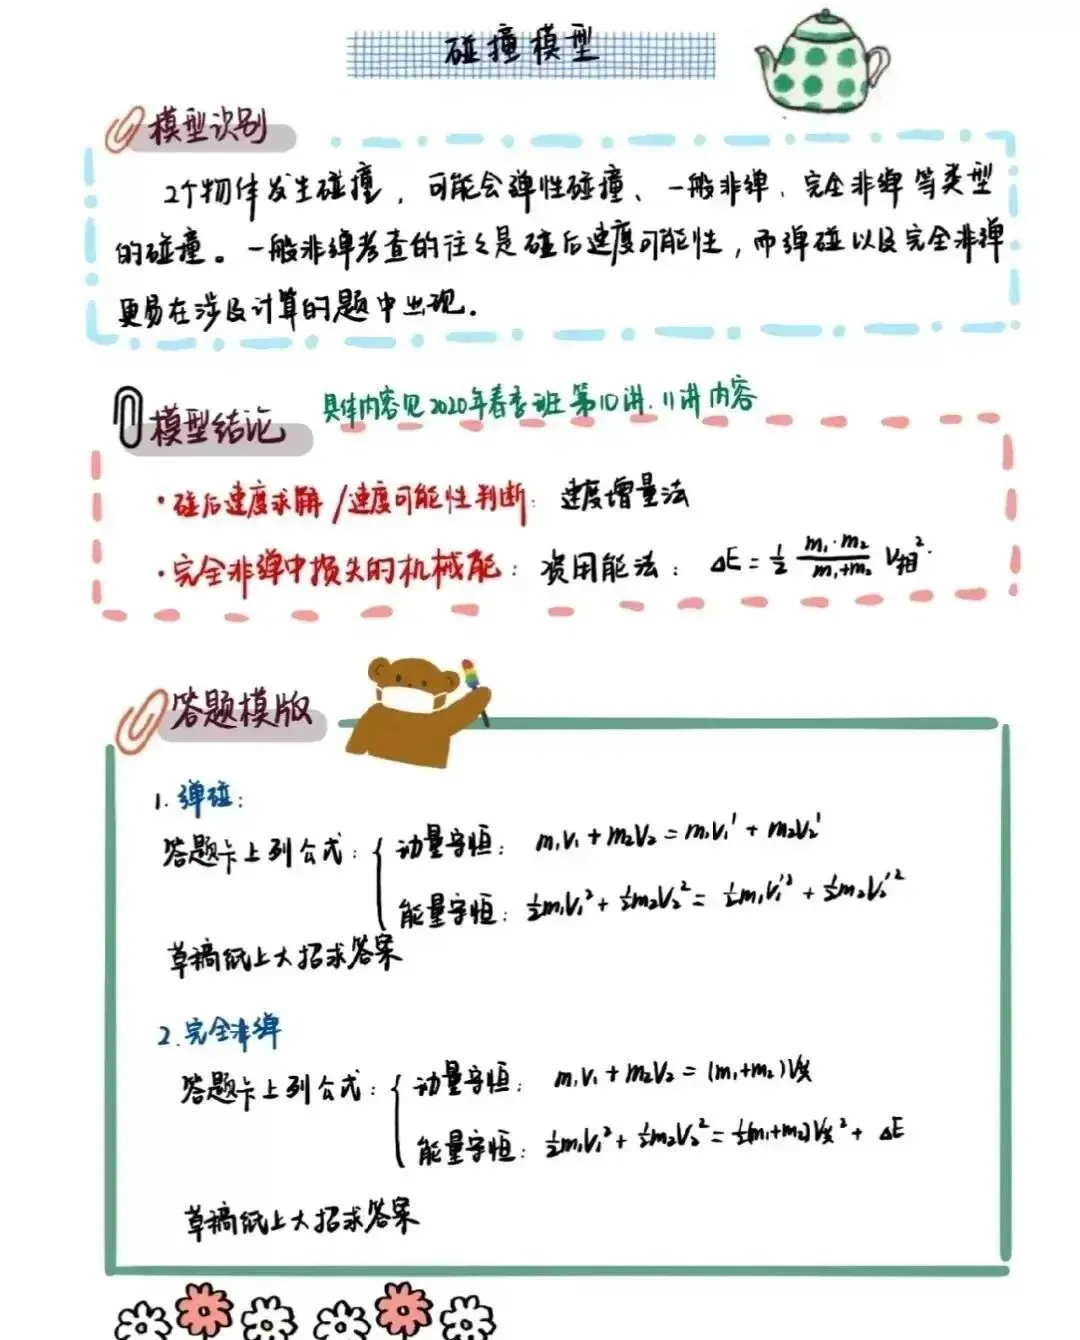 碰撞模型
模型识别
2个物体发生碰撞，可能会弹性碰撞、一般非弹、完全非弹等类型
的碰撞。一般非弹考查的往往是碰后速度可能性，而弹碰以及完全非弹
更易在涉及计算的题中出现.
模型结论
具体内容见2020年春季班第10讲、11讲内容
·碰后速度求解/速度可能性判断：速度增量法
·完全非弹中损失的机械能：资用能法：ΔE=½ m₁·m₂/(m₁+m₂) V相²
答题模版
1.弹碰：
答题卡上列公式：{动量守恒：m₁V₁+m₂V₂=m₁V₁'+m₂V₂'
能量守恒：½m₁V₁²+½m₂V₂²=½m₁V₁'²+½m₂V₂'²
草稿纸上大招求答案
2.完全非弹
答题卡上列公式：{动量守恒：m₁V₁+m₂V₂=(m₁+m₂)V共
能量守恒：½m₁V₁²+½m₂V₂²=½(m₁+m₂)V共²+ΔE
草稿纸上大招求答案